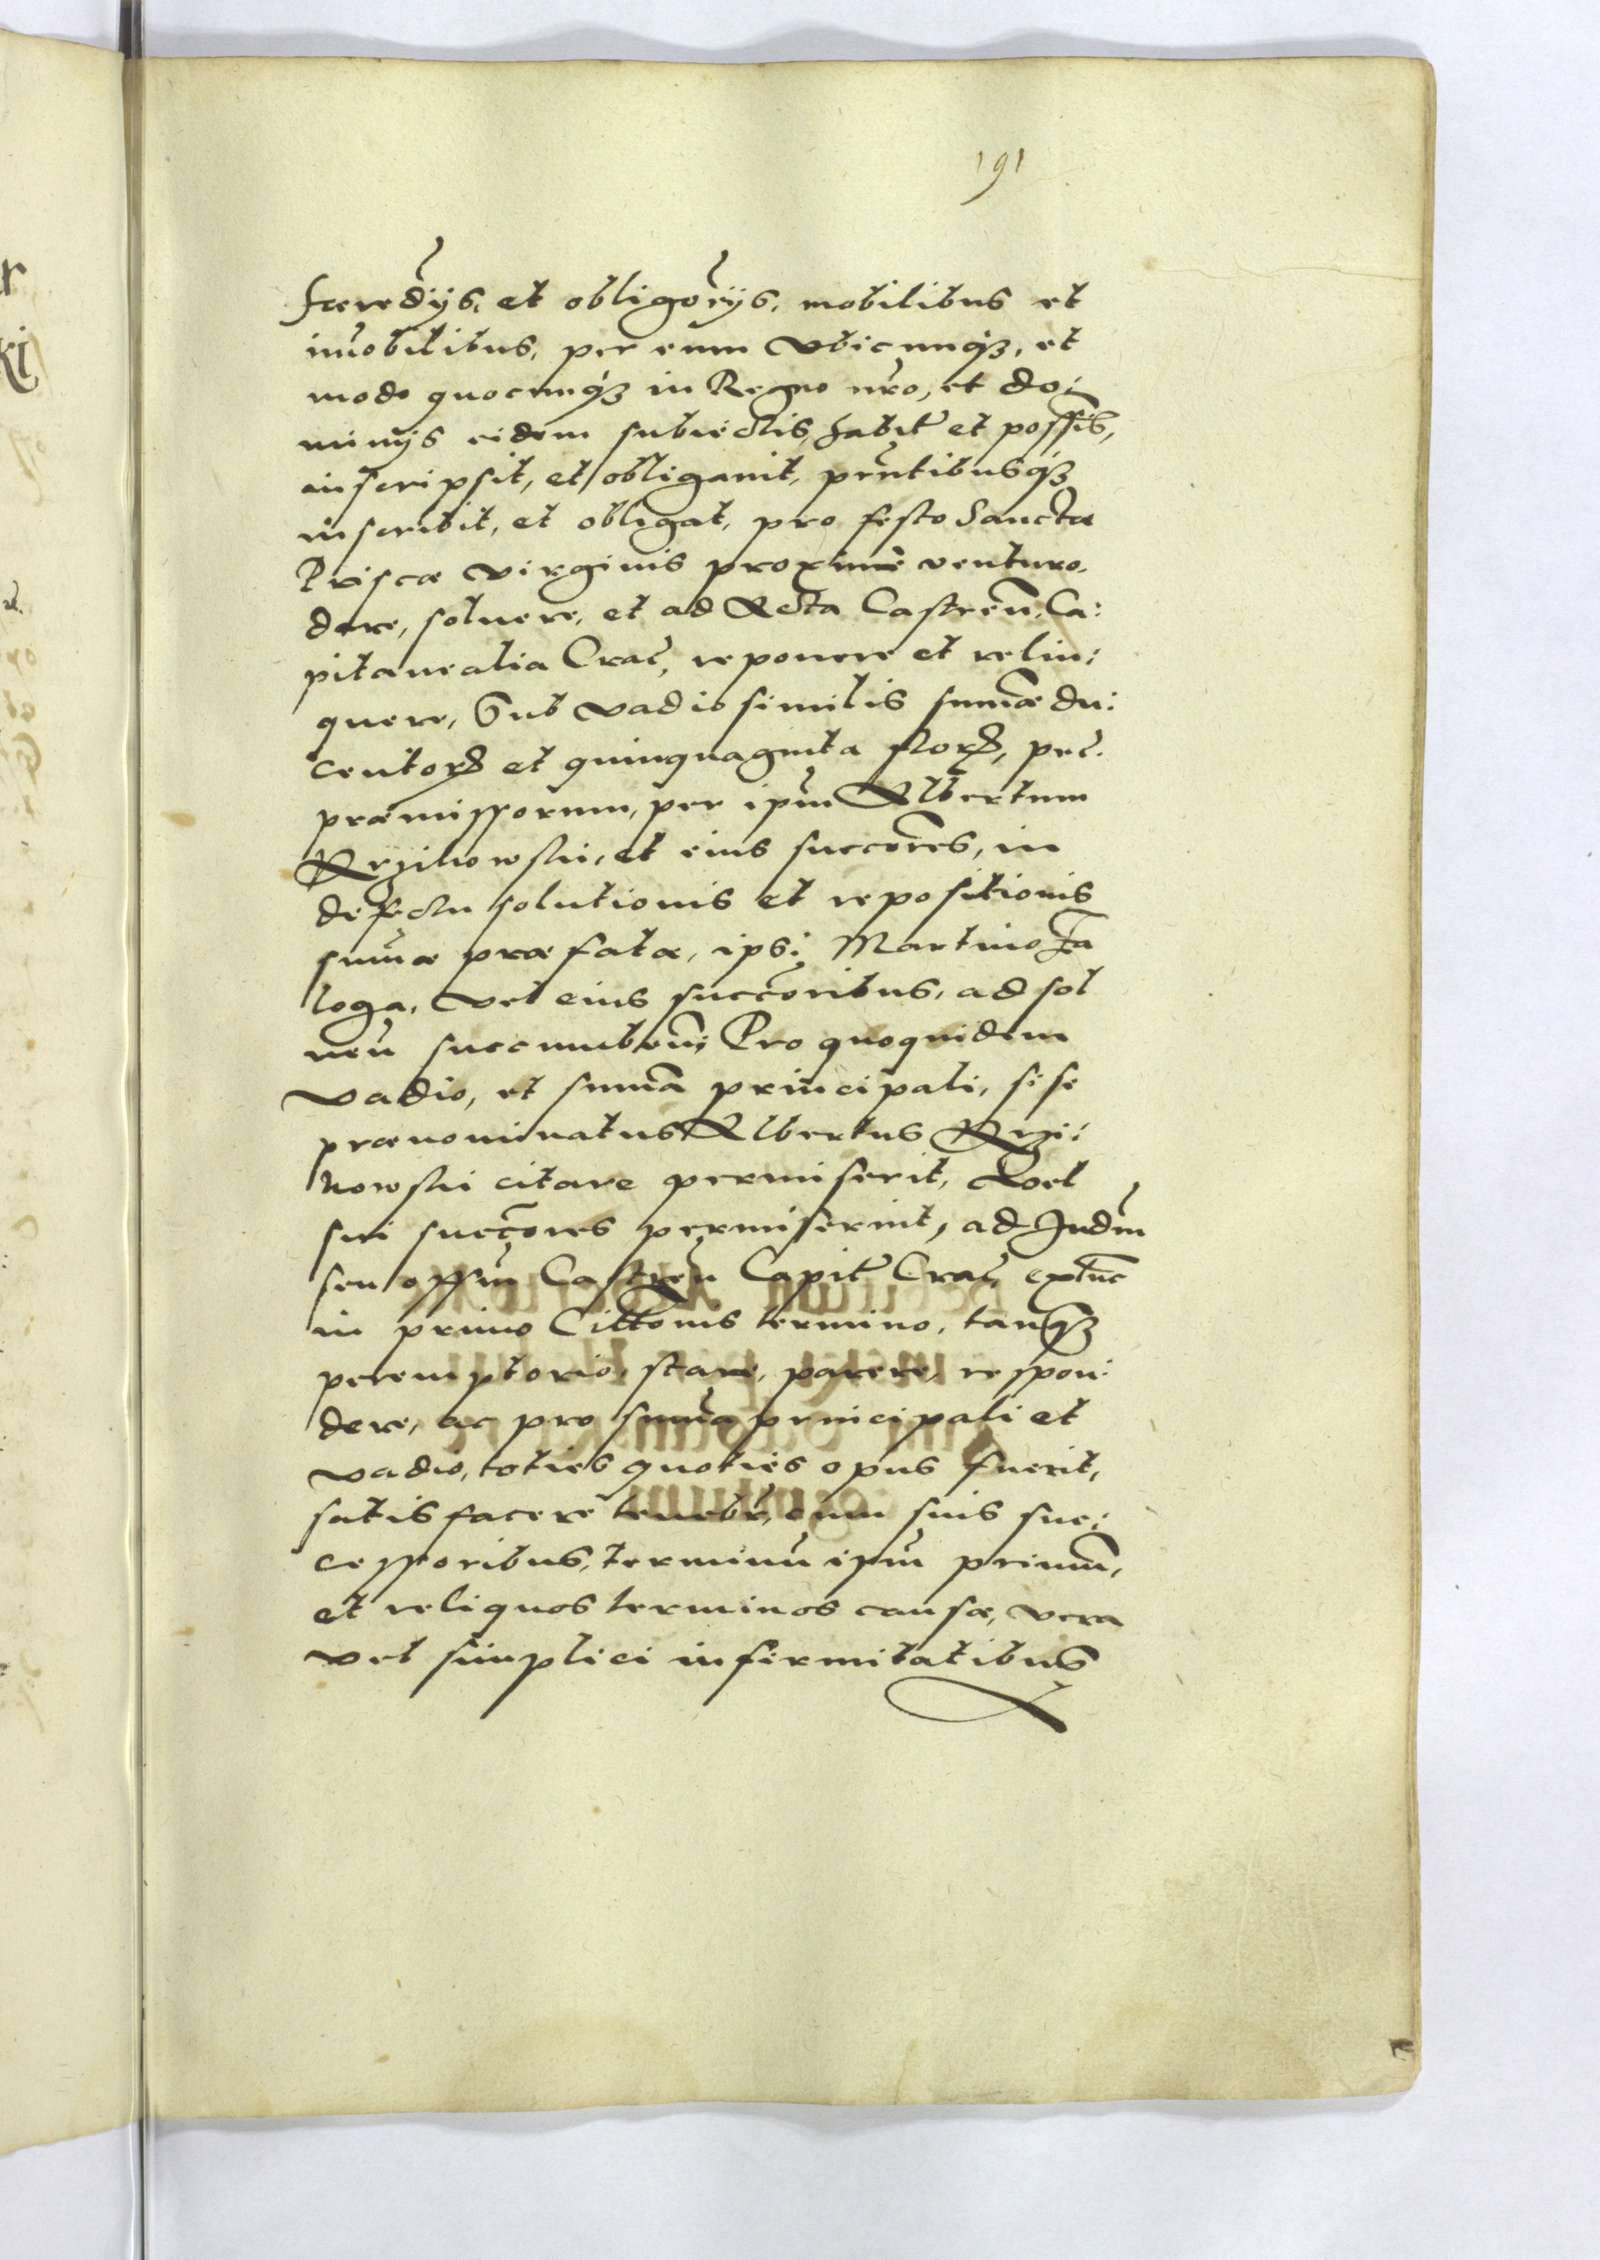 191
hæredijs, et obligorijs, mobilibus et
imobilibus, per eum vbicunq3, et
modo quocunq3 in Regno nro, et do:
minijs eidem subiectis, habit et possis,
inscripsit, et obligauit, prntibusq3
inscribit, et obligat, pro festo Sanctæ
Priscæ virginis proxime venturo,
dare, soluere, et ad Acta Castren, Ca:
pitanealia Crac, reponere et relin:
quere, Sub vadio similis sumæ du:
centor et quinquaginta flor, pec.
præmissorum, per ipm Albertum
et eius succores, in
defectu solutionis et repositionis
sumæ præfatæ, ipsi Martino
loga, vel eius succoribus, ad sol
uen succumben; Pro quoquidem
vadio, et suma principali, si se
prænominatus Albertus
nowski citare permiserit, Vel
sui succores permiserint, ad Iudm
seu offm Castren Capit Crac, extunc
in primo Cittonis termino, tanq3
peremptorio, stare, parere, respon:
dere, ac pro suma principali et
vadio, toties quoties opus fuerit,
satisfacere tenebr, cum suis suc:
cessoribus, terminu ipm primum,
et reliquos terminos causæ, vera
vel simplici infirmitatibus